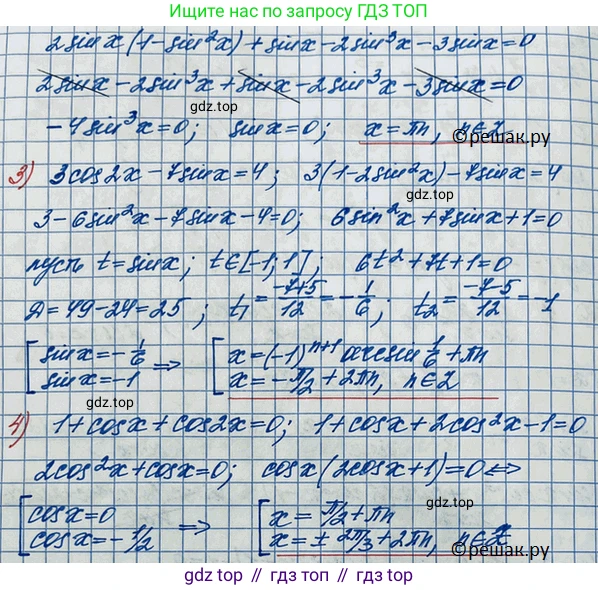 Найди ещё по запросу ГДЗ ТОП
2sinx(1-sin²x)+sinx-2sin³x-3sinx=0
2sinx-2sin³x+sinx-2sin³x-3sinx=0
gdz.top
-4sin³x=0; sinx=0; x=πn, n∈Z
©решак.ру
3) 3cos2x-7sinx=4; 3(1-2sin²x)-7sinx=4
3-6sin²x-7sinx-4=0; 6sin²x+7sinx+1=0
пусть t=sinx; t∈[-1;1]; 6t²+7t+1=0
gdz.top
Д=49-24=25; t₁=(-7+5)/12=-1/6; t₂=(-7-5)/12=-1
[sinx=-1/6 ⇒ [x=(-1)ⁿ⁺¹arcsin 1/6+πn
sinx=-1 x=-π/2+2πn, n∈Z
gdz.top
4) 1+cosx+cos2x=0; 1+cosx+2cos²x-1=0
2cos²x+cosx=0; cosx(2cosx+1)=0 ⇔
gdz.top
[cosx=0 ⇒ [x=π/2+πn
cosx=-1/2 x=±2π/3+2πn, n∈Z
©решак.ру
gdz.top // гдз.top // гдз.топ